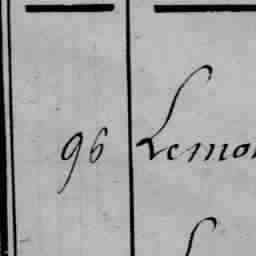 96 Lemo